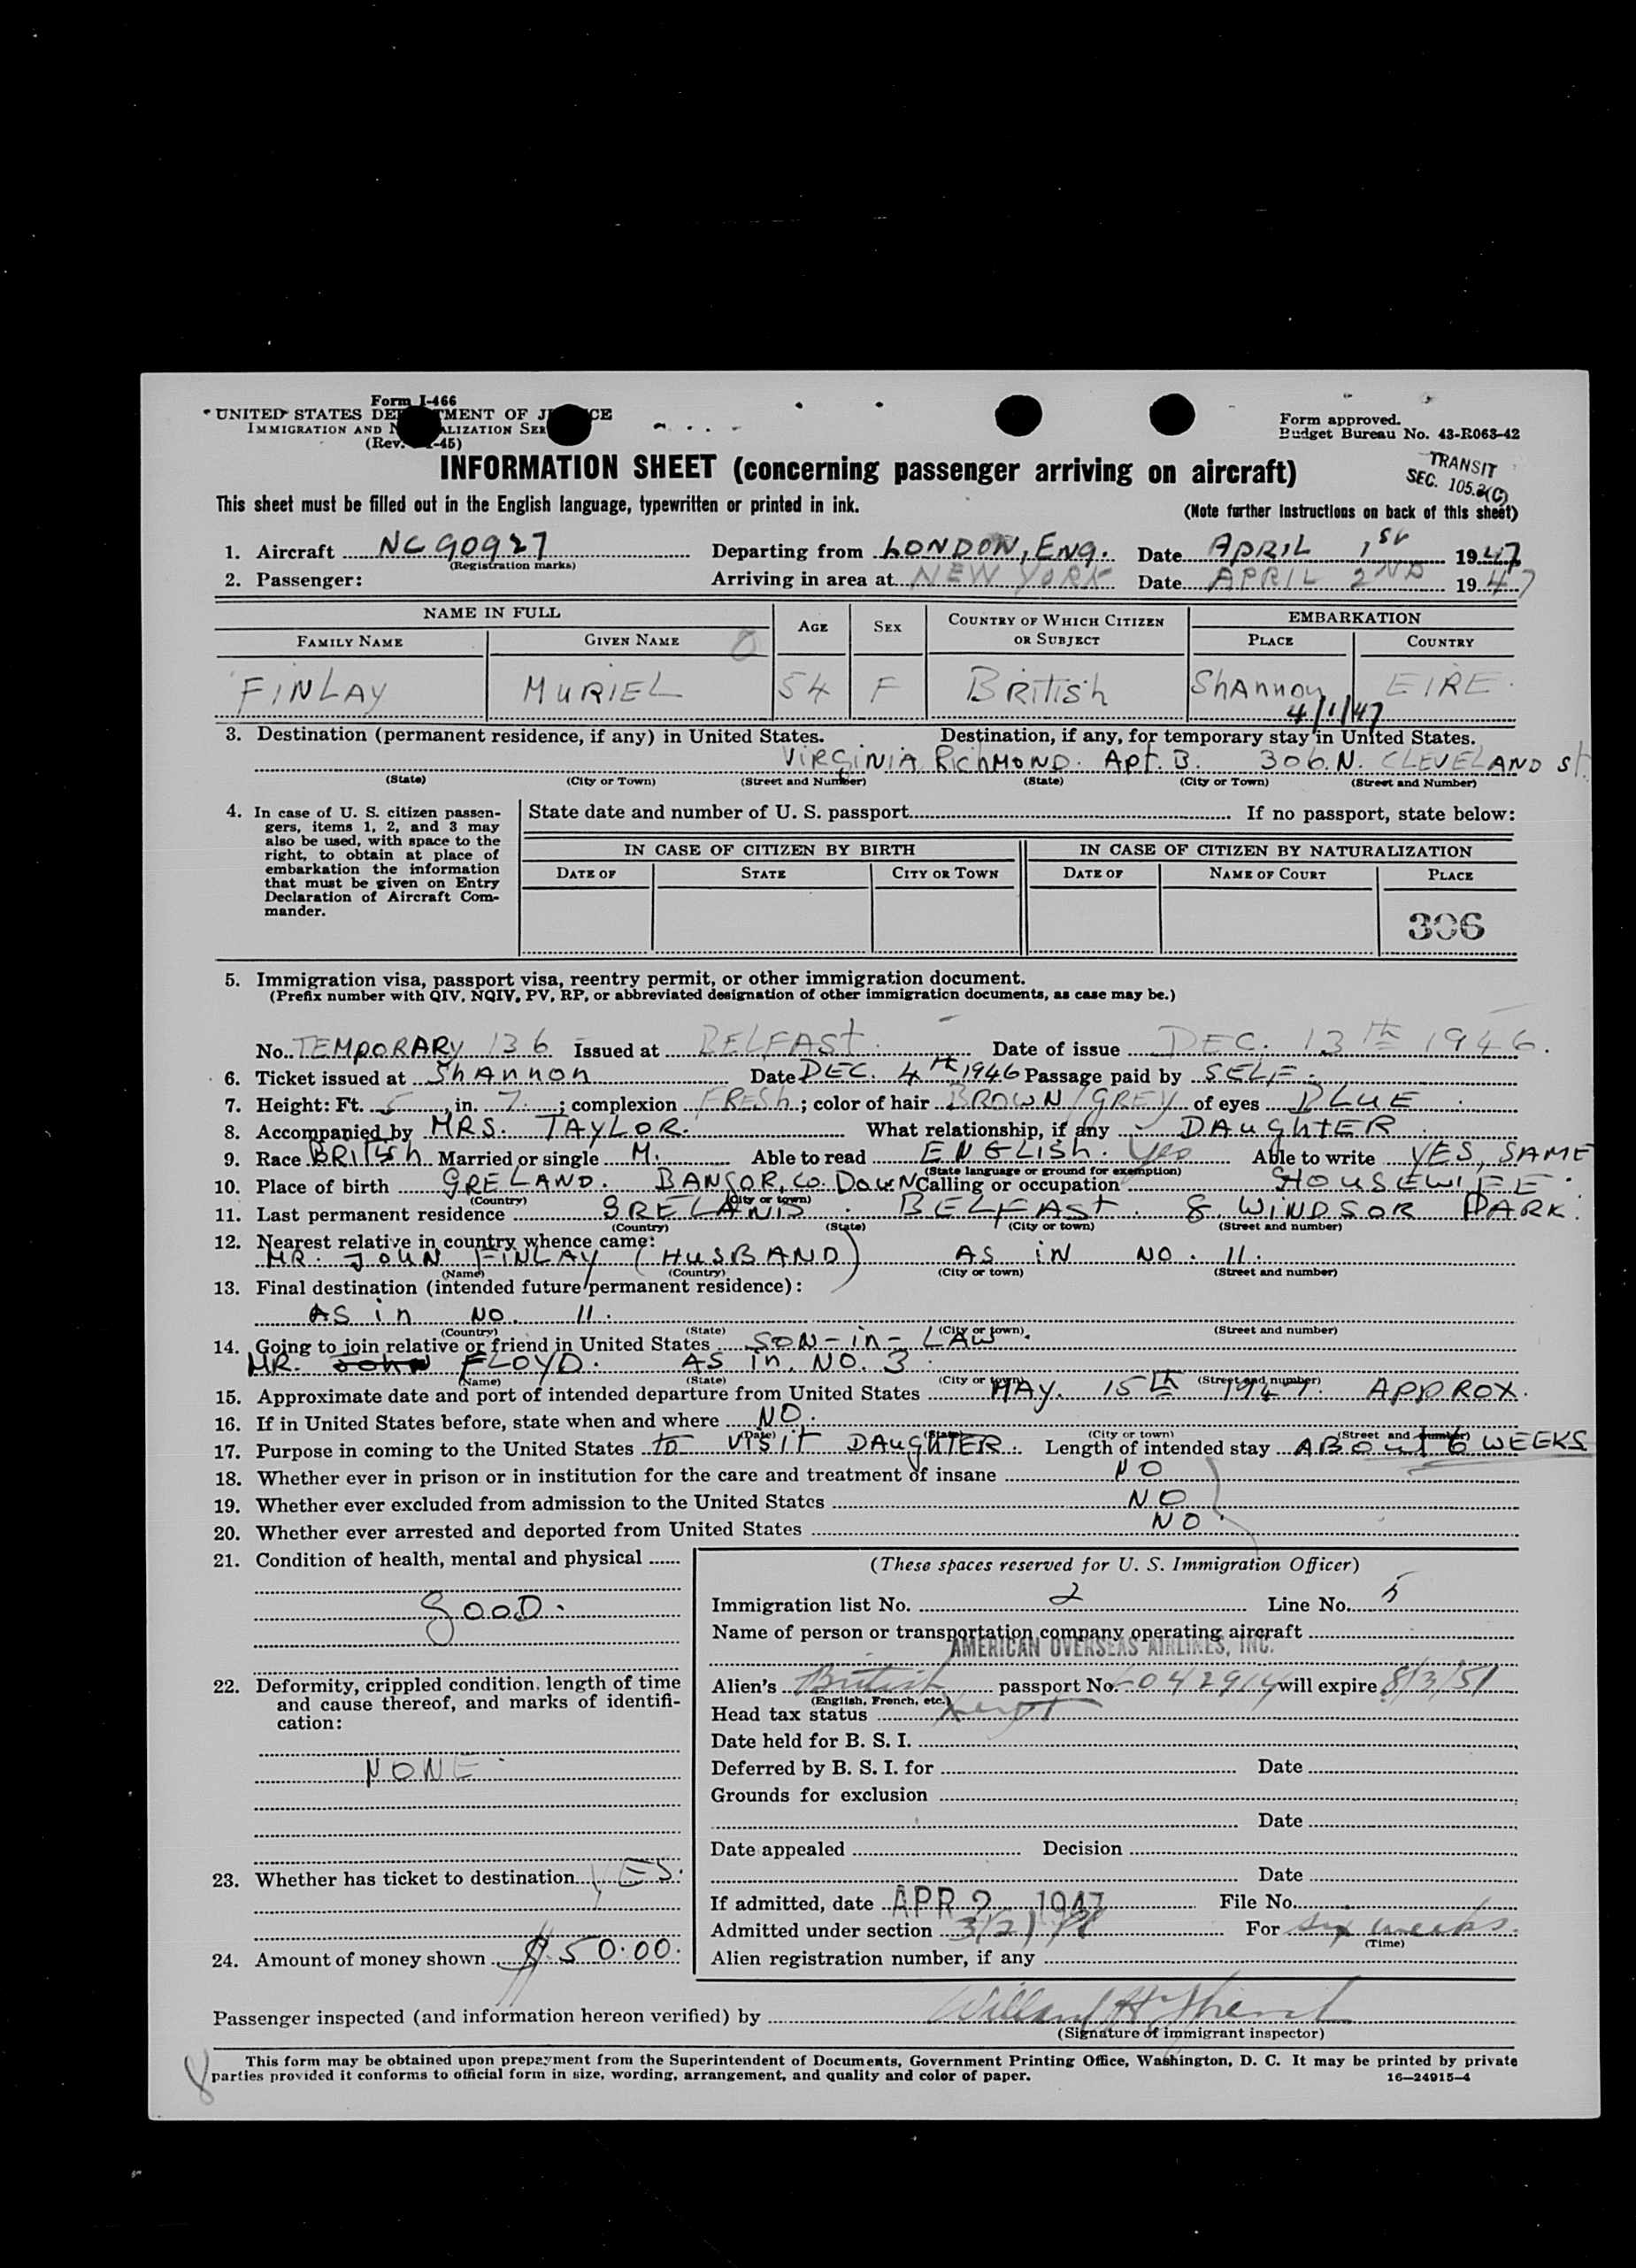 Form I-466
UNITED STATES DEPARTMENT OF JUSTICE
IMMIGRATION AND NATURALIZATION SERVICE
(Rev. -45)
Form approved.
Budget Bureau No. 43-R063-42
INFORMATION SHEET (concerning passenger arriving on aircraft)
TRANSIT
SEC. 105.3(C)
This sheet must be filled out in the English language, typewritten or printed in ink.
(Note further instructions on back of this sheet)
1. Aircraft NC 90927 Departing from LONDON, ENG. Date APRIL 1st 1947
(Registration marks)
2. Passenger: Arriving in area at NEW YORK Date APRIL 2ND 1947
NAME IN FULL AGE SEX COUNTRY OF WHICH CITIZEN OR SUBJECT EMBARKATION
FAMILY NAME GIVEN NAME PLACE COUNTRY
FINLAY MURIEL 54 F BRITISH SHANNON EIRE.
4/1/47
3. Destination (permanent residence, if any) in United States. Destination, if any, for temporary stay in United States.
VIRGINIA RICHMOND. APT. B. 306. N. CLEVELAND St.
(State) (City or Town) (Street and Number) (State) (City or Town) (Street and Number)
4. In case of U. S. citizen passengers, items 1, 2, and 3 may also be used, with space to the right, to obtain at place of embarkation the information that must be given on Entry Declaration of Aircraft Commander.
State date and number of U. S. passport If no passport, state below:
IN CASE OF CITIZEN BY BIRTH IN CASE OF CITIZEN BY NATURALIZATION
DATE OF STATE CITY OR TOWN DATE OF NAME OF COURT PLACE
306
5. Immigration visa, passport visa, reentry permit, or other immigration document.
(Prefix number with QIV, NQIV, PV, RP, or abbreviated designation of other immigration documents, as case may be.)
No. TEMPORARY 136 Issued at BELFAST. Date of issue DEC. 13th 1946.
6. Ticket issued at SHANNON Date DEC. 4th 1946 Passage paid by SELF.
7. Height: Ft. 5, in. 7.; complexion FRESH; color of hair BROWN/GREY of eyes BLUE.
8. Accompanied by MRS. TAYLOR. What relationship, if any DAUGHTER.
9. Race BRITISH Married or single M. Able to read ENGLISH. Yes Able to write YES, SAME
(State language or ground for exemption)
10. Place of birth IRELAND. BANGOR, Co. DOWN Calling or occupation HOUSEWIFE.
(Country) (City or town)
11. Last permanent residence IRELAND. BELFAST. 8 WINDSOR PARK.
(Country) (State) (City or town) (Street and number)
12. Nearest relative in country whence came:
MR. JOHN FINLAY (HUSBAND) AS IN NO. 11.
(Name) (Country) (City or town) (Street and number)
13. Final destination (intended future permanent residence):
AS in NO. 11.
(Country) (State) (City or town) (Street and number)
14. Going to join relative or friend in United States SON-in-LAW.
MR. John FLOYD. AS in. NO. 3.
(Name) (State) (City or town) (Street and number)
15. Approximate date and port of intended departure from United States MAY. 15th 1947. APPROX.
16. If in United States before, state when and where NO.
(Date) (State) (City or town) (Street and number)
17. Purpose in coming to the United States to VISIT DAUGHTER. Length of intended stay ABOUT 6 WEEKS
18. Whether ever in prison or in institution for the care and treatment of insane NO
19. Whether ever excluded from admission to the United States NO
20. Whether ever arrested and deported from United States NO.
21. Condition of health, mental and physical
GOOD.
22. Deformity, crippled condition. length of time and cause thereof, and marks of identification:
NONE.
23. Whether has ticket to destination YES.
24. Amount of money shown $50.00.
(These spaces reserved for U. S. Immigration Officer)
Immigration list No. 2 Line No. 5
Name of person or transportation company operating aircraft
AMERICAN OVERSEAS AIRLINES, INC.
Alien's British passport No. 042914 will expire 8/3/51
(English, French, etc.)
Head tax status
Date held for B. S. I.
Deferred by B. S. I. for Date
Grounds for exclusion
Date
Date appealed Decision
Date
If admitted, date APR 2 1947 File No.
Admitted under section 3(2) For six weeks.
(Time)
Alien registration number, if any
Passenger inspected (and information hereon verified) by
(Signature of immigrant inspector)
This form may be obtained upon prepayment from the Superintendent of Documents, Government Printing Office, Washington, D. C. It may be printed by private
parties provided it conforms to official form in size, wording, arrangement, and quality and color of paper.
16—24915-4